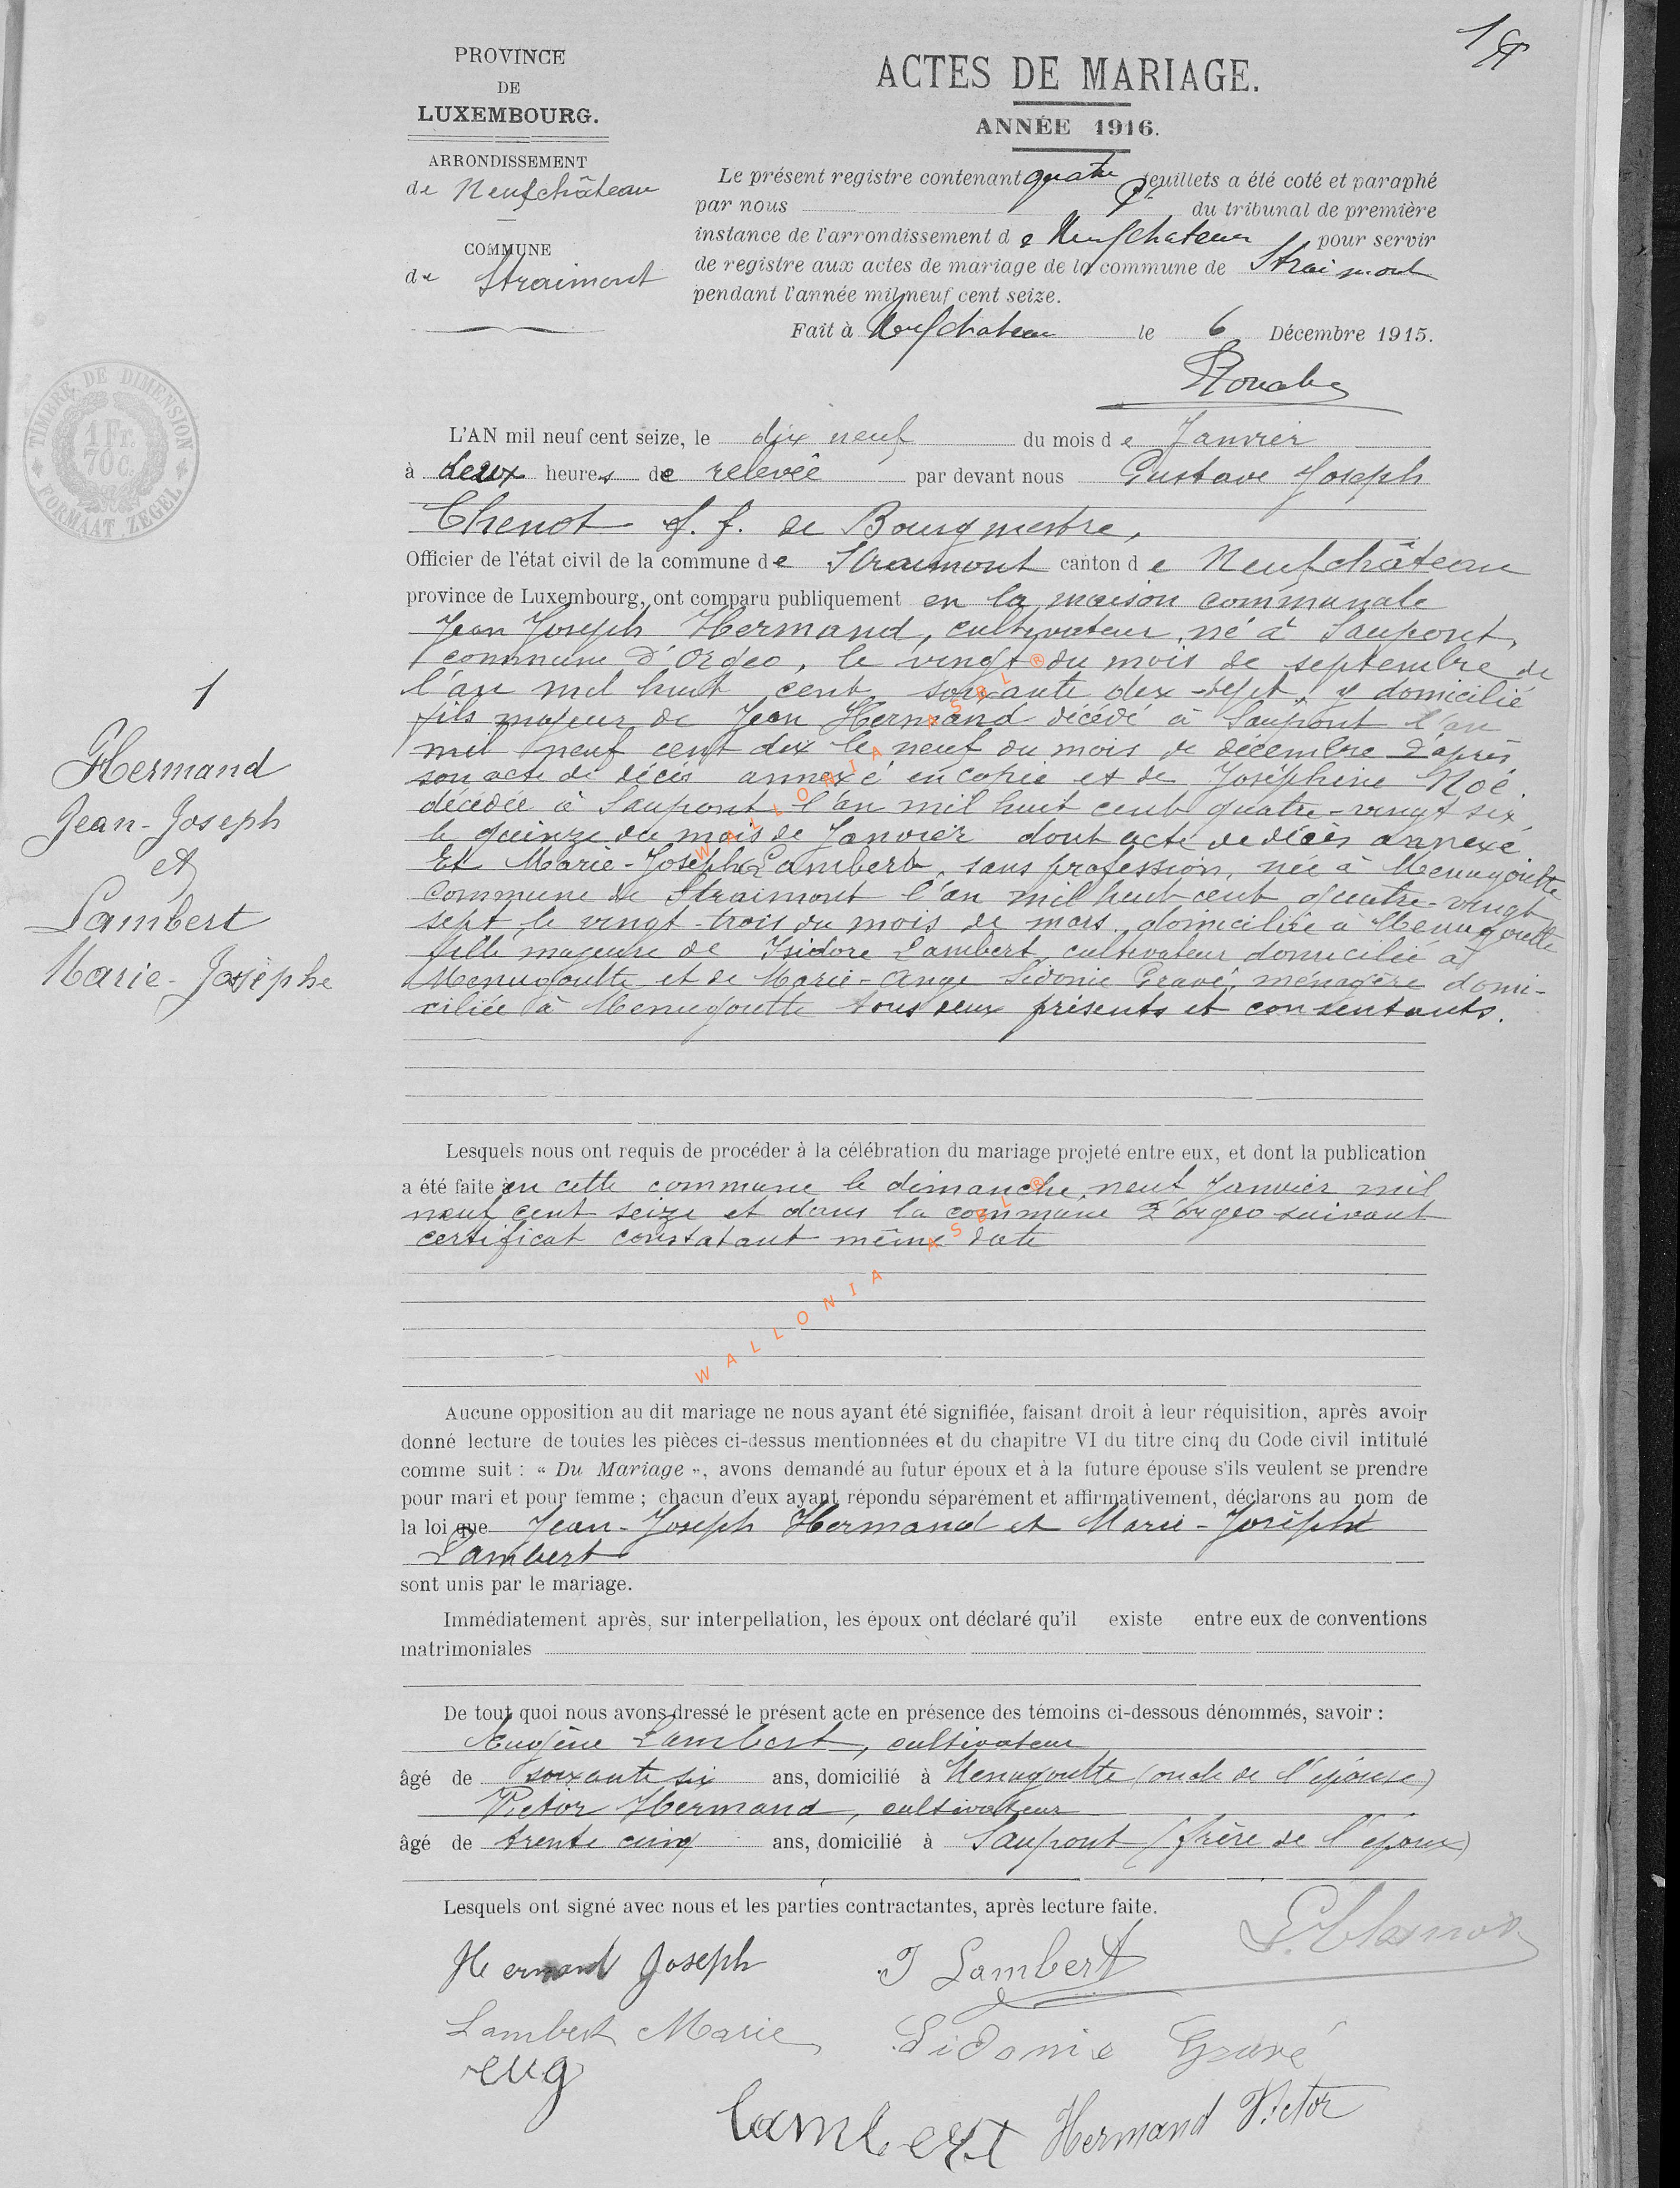 PROVINCE
DE
LUXEMBOURG.
ARRONDISSEMENT
de Neufchâteau
COMMUNE
de Straimont
ACTES DE MARIAGE.
ANNÉE 1916.
Le présent registre contenant quatre feuillets a été coté et paraphé
par nous Pt du tribunal de première
instance de l'arrondissement de Neufchateau pour servir
de registre aux actes de mariage de la commune de Straimont
pendant l'année mil neuf cent seize.
Fait à Neufchateau le 6 Décembre 1915.
TIMBRE DE DIMENSION
1 Fr.
70 C.
FORMAAT ZEGEL
L'AN mil neuf cent seize, le dix neuf du mois de Janvier
à deux heures de relevée par devant nous Gustave Joseph
Thenot f. f. de Bourgmestre,
Officier de l'état civil de la commune de Straimont canton de Neufchâteau
province de Luxembourg, ont comparu publiquement en la maison communale
Jean Joseph Hermand, cultivateur, né à Saupont,
commune d'Orgeo, le vingt du mois de septembre de
l'an mil huit cent soixante dix-sept, y domicilié
fils majeur de Jean Hermand décédé à Saupont l'an
mil neuf cent dix le neuf du mois de décembre d'après
son acte de décès annexé en copie et de Joséphine Noé
décédée à Saupont l'an mil huit cent quatre-vingt six
le quinze du mois de Janvier dont acte de décès annexé
Et Marie-Josèphe Lambert, sans profession, née à Menugoutte
commune de Straimont l'an mil huit cent quatre-vingt
sept le vingt-trois du mois de mars domiciliée à Menugoutte
fille majeure de Isidore Lambert, cultivateur domicilié à
Menugoutte et de Marie-Ange Sidonie Gravé, ménagère domi-
ciliée à Menugoutte tous deux présents et consentants.
1
Hermand
Jean-Joseph
et
Lambert
Marie-Josèphe
Lesquels nous ont requis de procéder à la célébration du mariage projeté entre eux, et dont la publication
a été faite en cette commune le dimanche neuf Janvier mil
neuf cent seize et dans la commune d'Orgeo suivant
certificat constatant même date
WALLONIA ASBL ®
WALLONIA ASBL ®
Aucune opposition au dit mariage ne nous ayant été signifiée, faisant droit à leur réquisition, après avoir
donné lecture de toutes les pièces ci-dessus mentionnées et du chapitre VI du titre cinq du Code civil intitulé
comme suit : « Du Mariage », avons demandé au futur époux et à la future épouse s'ils veulent se prendre
pour mari et pour femme ; chacun d'eux ayant répondu séparément et affirmativement, déclarons au nom de
la loi que Jean-Joseph Hermand et Marie-Josèphe
Lambert
sont unis par le mariage.
Immédiatement après, sur interpellation, les époux ont déclaré qu'il existe entre eux de conventions
matrimoniales
De tout quoi nous avons dressé le présent acte en présence des témoins ci-dessous dénommés, savoir :
Eugène Lambert, cultivateur
âgé de soixante six ans, domicilié à Menugoutte (oncle de l'épouse)
Victor Hermand, cultivateur
âgé de trente cinq ans, domicilié à Saupont (frère de l'époux)
Lesquels ont signé avec nous et les parties contractantes, après lecture faite.
Hermand Joseph
J Lambert
Lambert Marie
Sidonie Gravé
eug
Lambert
Hermand Victor